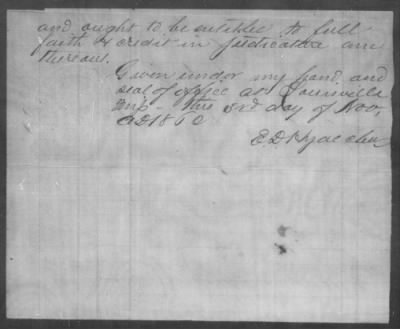 and ought to be entitled to full
faith & credit in Judicature and
thereout.
Given under my hand and
seal of office at Louisville
Mip – this 3rd day of Nov,
AD 186
E D